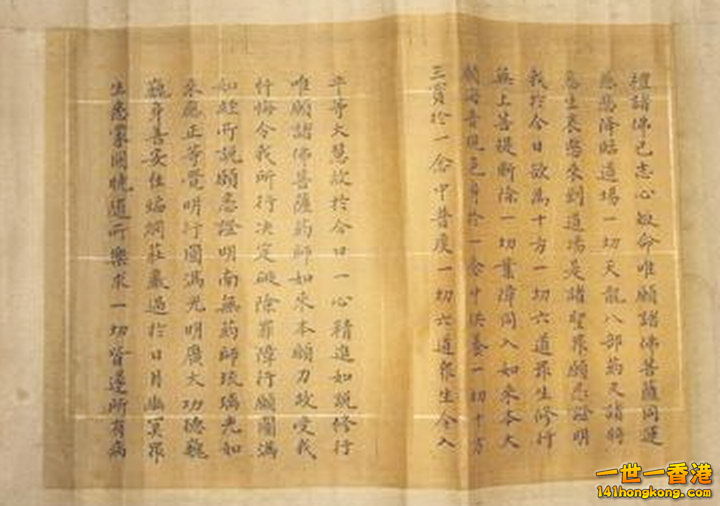 禮諸佛已志心歸命唯願諸佛菩薩同運
慈悲降臨道場一切天龍八部药叉諸將
咸生哀愍来到道場是諸聖眾願悉證明
我於今日欲為十方一切六道眾生修行
無上菩提断除一切業障同入如来本大
願海普現色身於一念中供養一切十方
三寶於一念中普度一切六道眾生令入
平等大慧故於今日一心精進如說修行
唯願諸佛菩薩药師如来本願力故受我
忏悔令我所行决定破除罪障行願圓滿
如經所說願悉證明南無药師琉璃光如
来應正等覺明行圓滿光明廣大功德巍
巍身善安住焰網莊嚴過於日月幽冥眾
生悉蒙開曉隨所樂求一切皆遂所有病
一世一香港
141hongkong.com